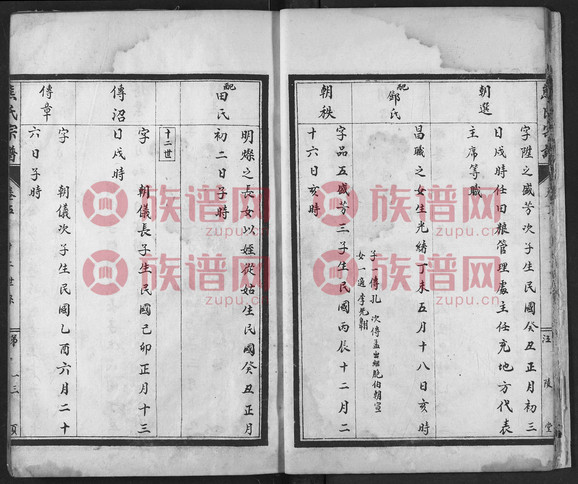 朝選
字陞之盛芳次子生民國癸丑正月初三
日戌時任田粮管理處主任充地方代表
主席等職
配鄧氏
昌職之女生光緒丁未五月十八日亥時
子一傳孔 次傳孟出繼胞伯朝宣
女一適李先朝
朝秩
字品五盛芳三子生民國丙辰十二月二
十六日亥時
汪陵堂
配田氏
明燦之長女以姪從姑生民國癸丑正月
初二日子時
十二世
傳沼
字 朝儀長子生民國己卯正月十三
日戌時
傳章
字 朝儀次子生民國乙酉六月二十
六日子時
氏宗譜
卷五
十二世
第 十三頁
族谱网
zupu.cn
族谱网
zupu.cn
族谱网
zupu.cn
族谱网
zupu.cn